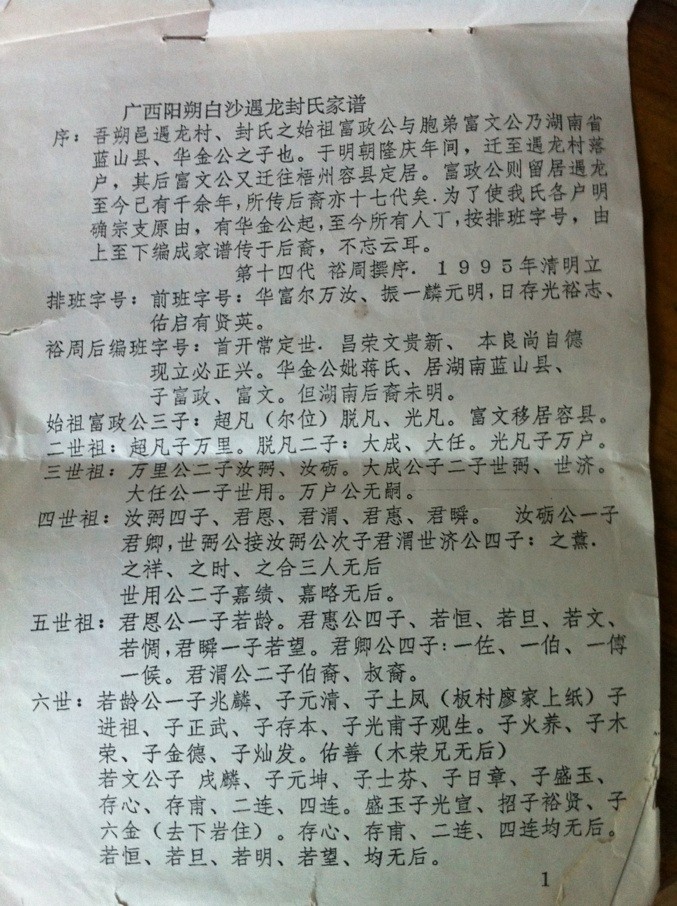 广西阳朔白沙遇龙封氏家谱
序：吾朔邑遇龙村、封氏之始祖富政公与胞弟富文公乃湖南省
蓝山县、华金公之子也。于明朝隆庆年间，迁至遇龙村落
户，其后富文公又迁往梧州容县定居。富政公则留居遇龙
至今已有千余年，所传后裔亦十七代矣.为了使我氏各户明
确宗支原由，有华金公起，至今所有人丁，按排班字号，由
上至下编成家谱传于后裔，不忘云耳。
第十四代 裕周撰序．１９９５年清明立
排班字号：前班字号：华富尔万汝、振一麟元明，日存光裕志、
佑启有贤英。
裕周后编班字号：首开常定世．昌荣文贵新、 本良尚自德
现立必正兴。华金公妣蒋氏、居湖南蓝山县、
子富政、富文。但湖南后裔未明。
始祖富政公三子：超凡（尔位）脱凡、光凡。富文移居容县。
二世祖：超凡子万里。脱凡二子：大成、大任。光凡子万户。
三世祖：万里公二子汝弼、汝砺。大成公子二子世弼、世济。
大任公一子世用。万户公无嗣。
四世祖：汝弼四子、君恩、君渭、君惠、君瞬。 汝砺公一子
君卿，世弼公接汝弼公次子君渭世济公四子：之蕙．
之祥、之时、之合三人无后
世用公二子嘉绩、嘉略无后。
五世祖：君恩公一子若龄。君惠公四子、若恒、若旦、若文、
若惆，君瞬一子若望。君卿公四子：一佐、一伯、一傅
一侯。君渭公二子伯裔、叔裔。
六世：若龄公一子兆麟、子元清、子土凤（板村廖家上纸）子
进祖、子正武、子存本、子光甫子观生。子火养、子木
荣、子金德、子灿发。佑善（木荣兄无后）
若文公子 戌麟、子元坤、子士芬、子日章、子盛玉、
存心、存甫、二连、四连。盛玉子光宣、招子裕贤、子
六金（去下岩住）。存心、存甫、二连、四连均无后。
若恒、若旦、若明、若望、均无后。
1